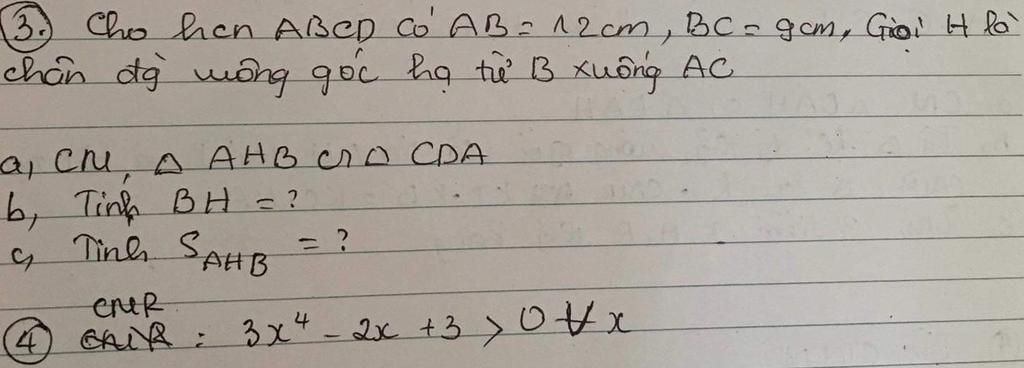 ③. Cho hcn ABCD có AB = 12cm, BC = 9cm, Gọi H là
chân đg vuông góc hạ từ B xuống AC
a, CM, △ AHB ∽ △ CDA
b, Tính BH = ?
c, Tính S_AHB = ?
CMR
④ CMR : 3x⁴ - 2x + 3 > 0 ∀ x